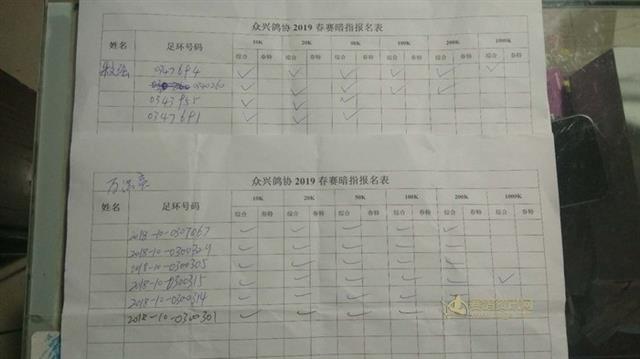 众兴鸽协2019春赛暗指报名表
姓名 足环号码 10K 20K 50K 100K 200K 1000K
综合 春特 综合 春特 综合 春特 综合 春特 综合 春特 综合 春特
0347694 ✓ ✓ ✓ ✓ ✓ ✓
0340260 ✓ ✓ ✓ ✓ ✓
0343955 ✓ ✓ ✓
0347691 ✓ ✓ ✓
众兴鸽协2019春赛暗指报名表
姓名 足环号码 10K 20K 50K 100K 200K 1000K
综合 春特 综合 春特 综合 春特 综合 春特 综合 春特 综合 春特
2018-10-0307067 ✓ ✓ ✓ ✓ ✓
2018-10-0300309 ✓ ✓ ✓ ✓ ✓
2018-10-0300305 ✓ ✓ ✓ ✓ ✓
2018-10-0300315 ✓ ✓ ✓ ✓ ✓ ✓
2018-10-0300314 ✓ ✓ ✓ ✓
2018-10-0300301 ✓ ✓ ✓ ✓ ✓